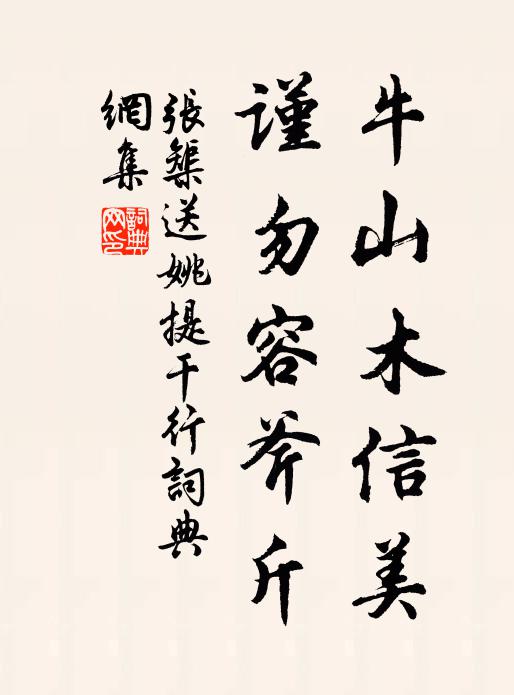 牛山木信美
謹勿容斧斤
張榘送姚提干行詞典
網集
詞典網印